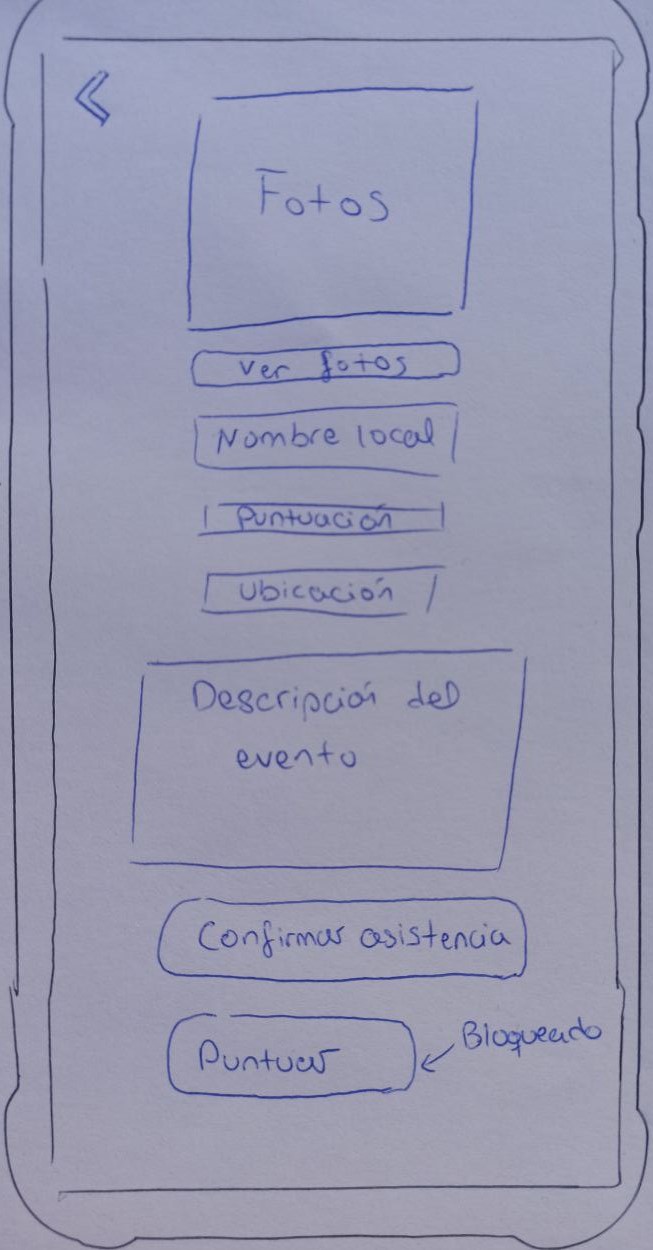 Fotos
Ver fotos
Nombre local
Puntuación
Ubicación
Descripción del
evento
Confirmar asistencia
Puntuar
Bloqueado